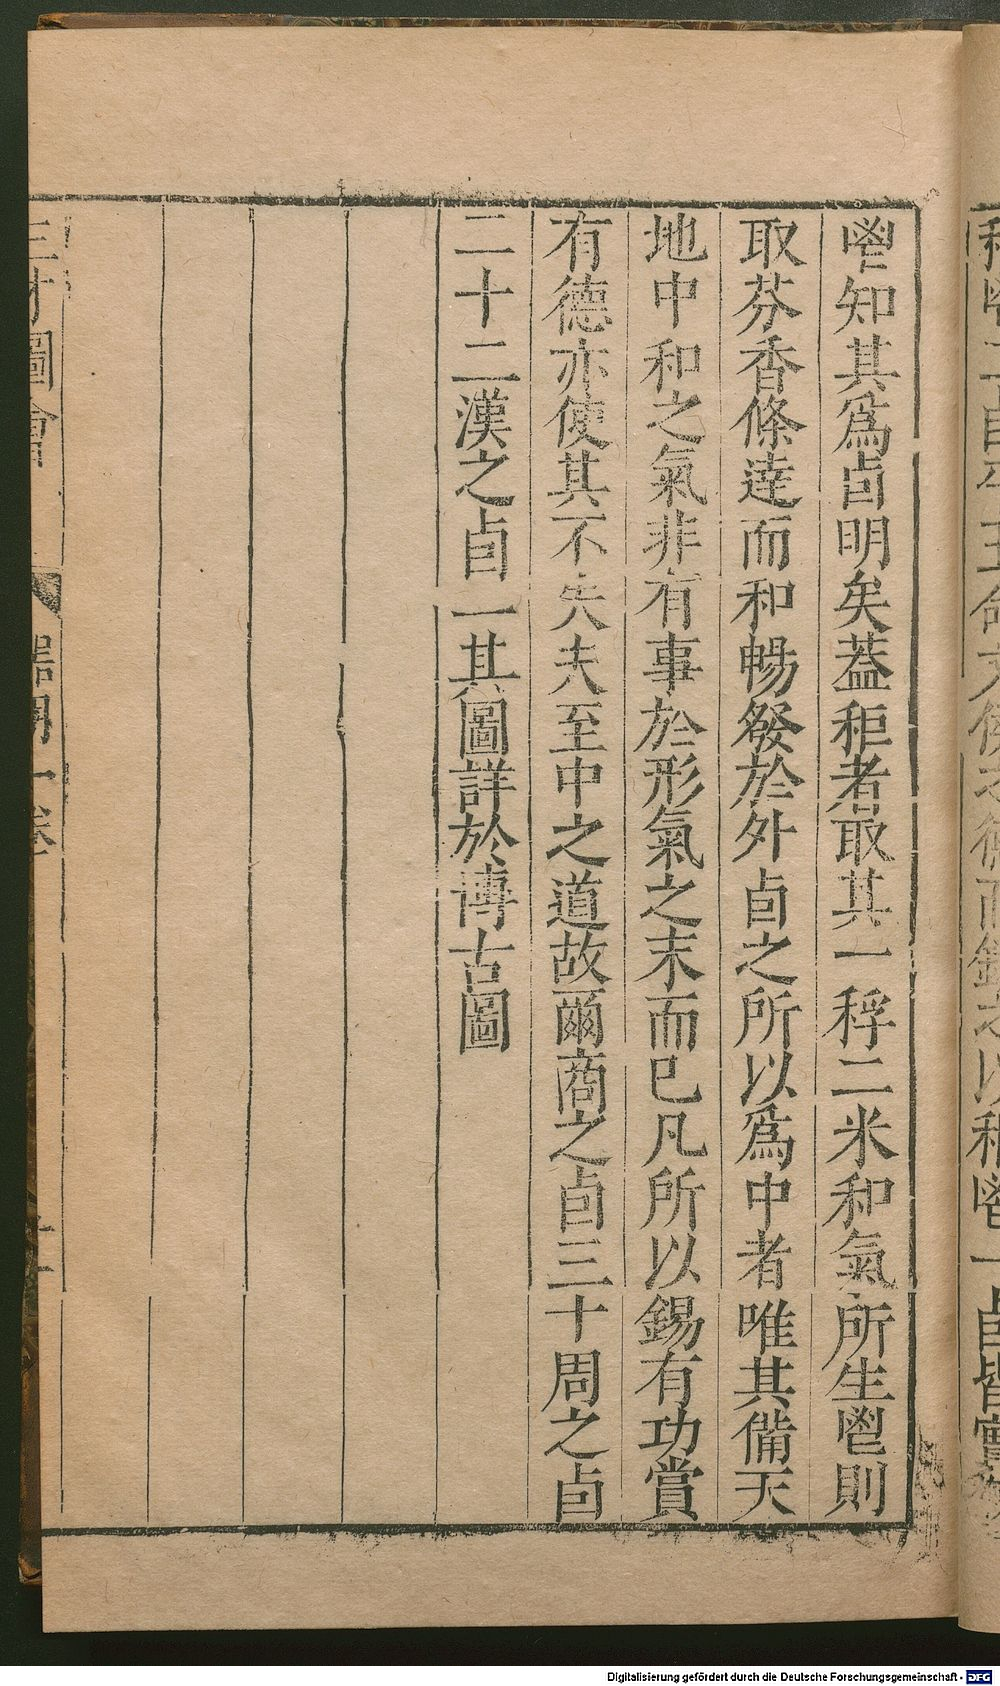 鬯知其爲卣明矣蓋秬者取其一稃二米和氣所生鬯則
取芬香條達而和暢發於外卣之所以爲中者唯其備天
地中和之氣非有事於形氣之末而已凡所以錫有功賞
有德亦使其不失夫至中之道故爾商之卣三十周之卣
二十二漢之卣一其圖詳於博古圖
三才圖會
器用一卷
十一
Digitalisierung gefördert durch die Deutsche Forschungsgemeinschaft - DFG